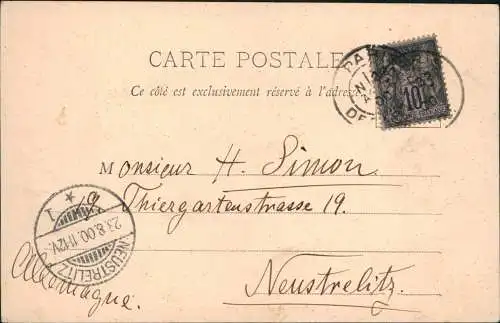 CARTE POSTALE
Ce côté est exclusivement réservé à l'adresse
PAR
DE
10
Monsieur H. Simon
19 Thiergartenstrasse 19.
Neustrelitz.
Allemagne.
NEUSTRELITZ
23.8.00.11-12V.
* 1